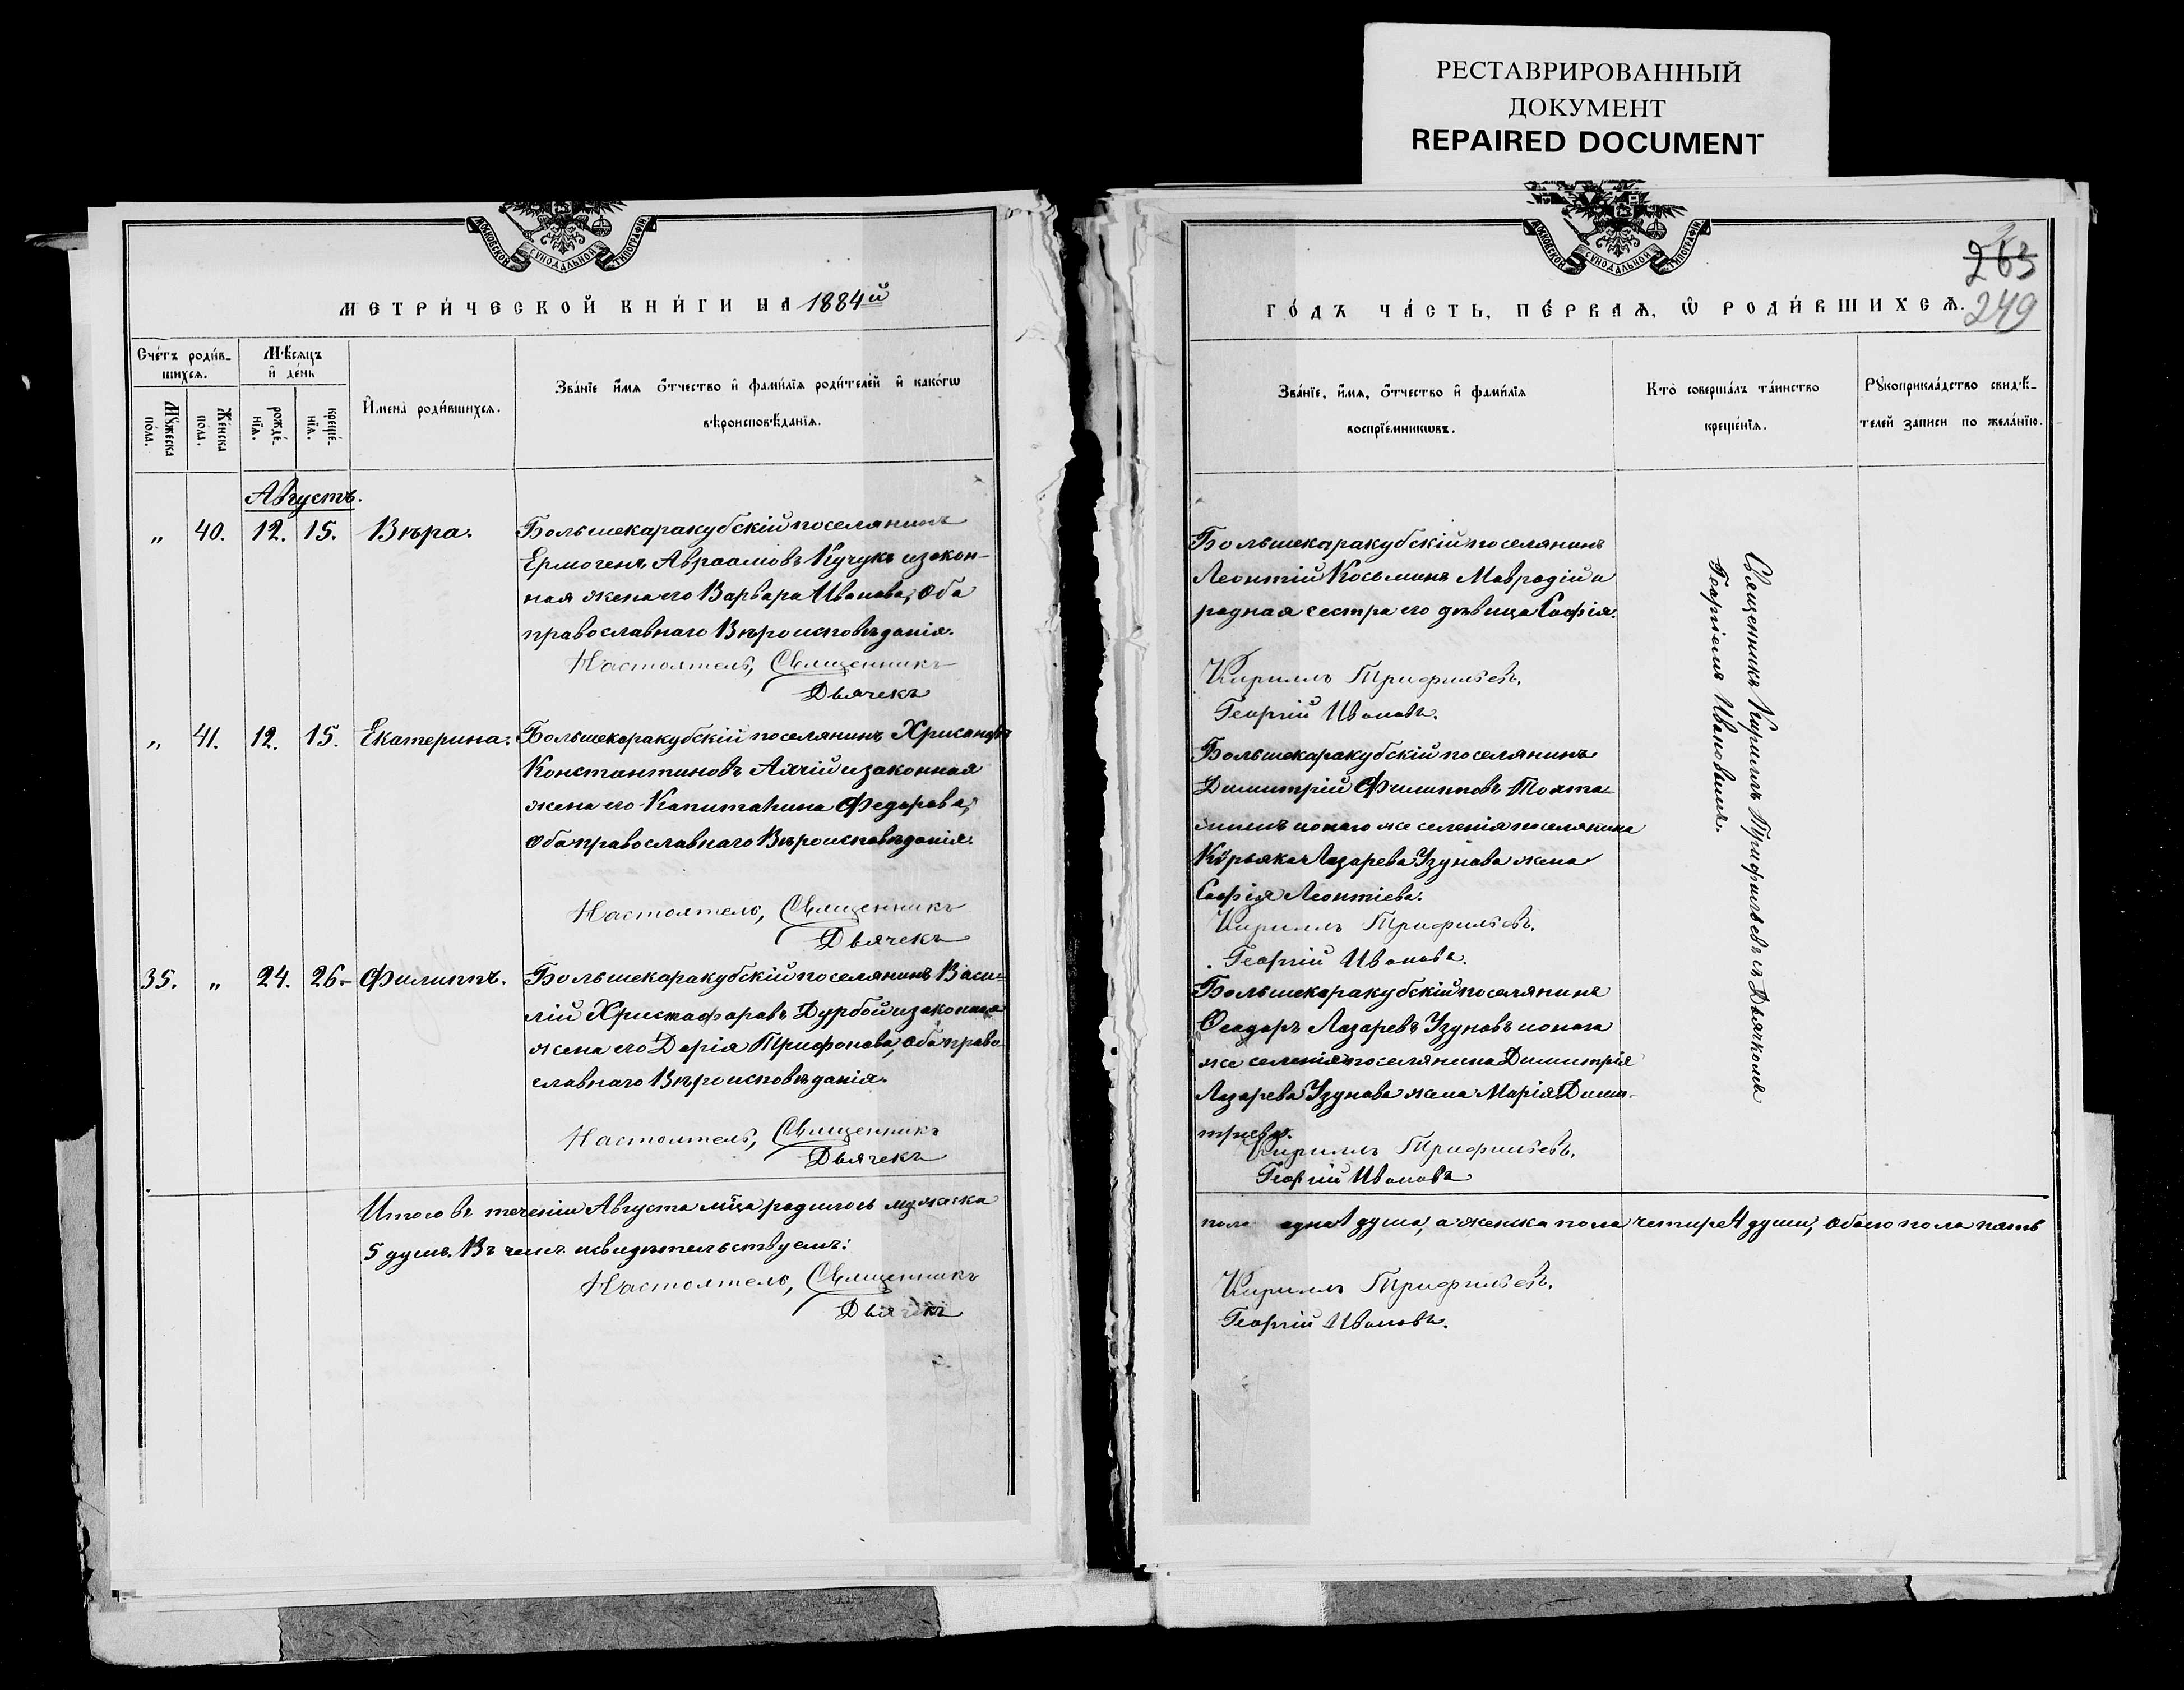 РЕСТАВРИРОВАННЫЙ
ДОКУМЕНТ
REPAIRED DOCUMENT
МОСКОВСКОЙ СѴНОДАЛЬНОЙ ТИПОГРАФІИ
МЕТРИ́ЧЕСКОЙ КНИ́ГИ НА 1884й
Сче́тъ роди́в-
шихсѧ.
Мѣ́сѧцъ
и҆ де́нь
Мꙋ́жеска
по́ла.
Же́нска
по́ла.
рожде́-
нїѧ.
креще́-
нїѧ.
И҆мена̀ роди́вшихсѧ.
Зва́нїе и҆́мѧ ѻ҆́тчество и҆ фами́лїѧ роди́телей и҆ како́гѡ
вѣроисповѣ́данїѧ.
Августъ.
„ 40. 12. 15. Вѣра.
Большекаракубскій поселянинъ
Ермогенъ Авраамовъ Кучукъ и закон-
ная жена его Варвара Иванова, оба
православнаго Вѣроисповѣданія.
Настоятель, Священникъ
Дьячекъ
„ 41. 12. 15. Екатерина.
Большекаракубскій поселянинъ Хрисанфъ
Константиновъ Аячій и законная
жена его Капиталина Федорова,
оба православнаго Вѣроисповѣданія.
Настоятель, Священникъ
Дьячекъ
35. „ 24. 26. Филиппъ.
Большекаракубскій поселянинъ Васи-
лій Христофоровъ Дурбой и законная
жена его Дарія Трифонова, оба право-
славнаго Вѣроисповѣданія.
Настоятель, Священникъ
Дьячекъ
Итого въ теченіи Августа мца родилось мужеска
5 душъ. Въ чемъ и свидѣтельствуемъ:
Настоятель, Священникъ
Дьячекъ
МОСКОВСКОЙ СѴНОДАЛЬНОЙ ТИПОГРАФІИ
263
249
ГО́ДЪ ЧА́СТЬ, ПЕ́РВАѦ, Ѡ҆ РОДИ́ВШИХСѦ.
Зва́нїе, и҆́мѧ, ѻ҆́тчество и҆ фами́лїѧ
воспрїе́мникѡвъ.
Кто̀ соверша́лъ та́инство
креще́нїѧ.
Рꙋкоприкла́дство свидѣ́-
телей записи по жела́нїю.
Большекаракубскій поселянинъ
Леонтій Косьминъ Мавродій и
родная сестра его дѣвица Софія.
Кирилъ Трифильевъ.
Георгій Ивановъ.
Большекаракубскій поселянинъ
Димитрій Филипповъ Тохта-
мишъ и онаго же селенія поселянина
Курьяка Лазарева Узунова жена
Софія Леонтіева.
Кирилъ Трифильевъ.
Георгій Ивановъ.
Большекаракубскій поселянинъ
Ѳеодоръ Лазаревъ Узуновъ и онаго
же селенія поселянина Димитрія
Лазарева Узунова жена Марія Дими-
тріева.
Кирилъ Трифильевъ.
Георгій Ивановъ
Священникъ Кирилъ Трифильевъ съ Дьячкомъ
Георгіемъ Ивановымъ.
пола одна 1 душа, а женска пола четыре 4 души, обоего пола пять
Кирилъ Трифильевъ.
Георгій Ивановъ.